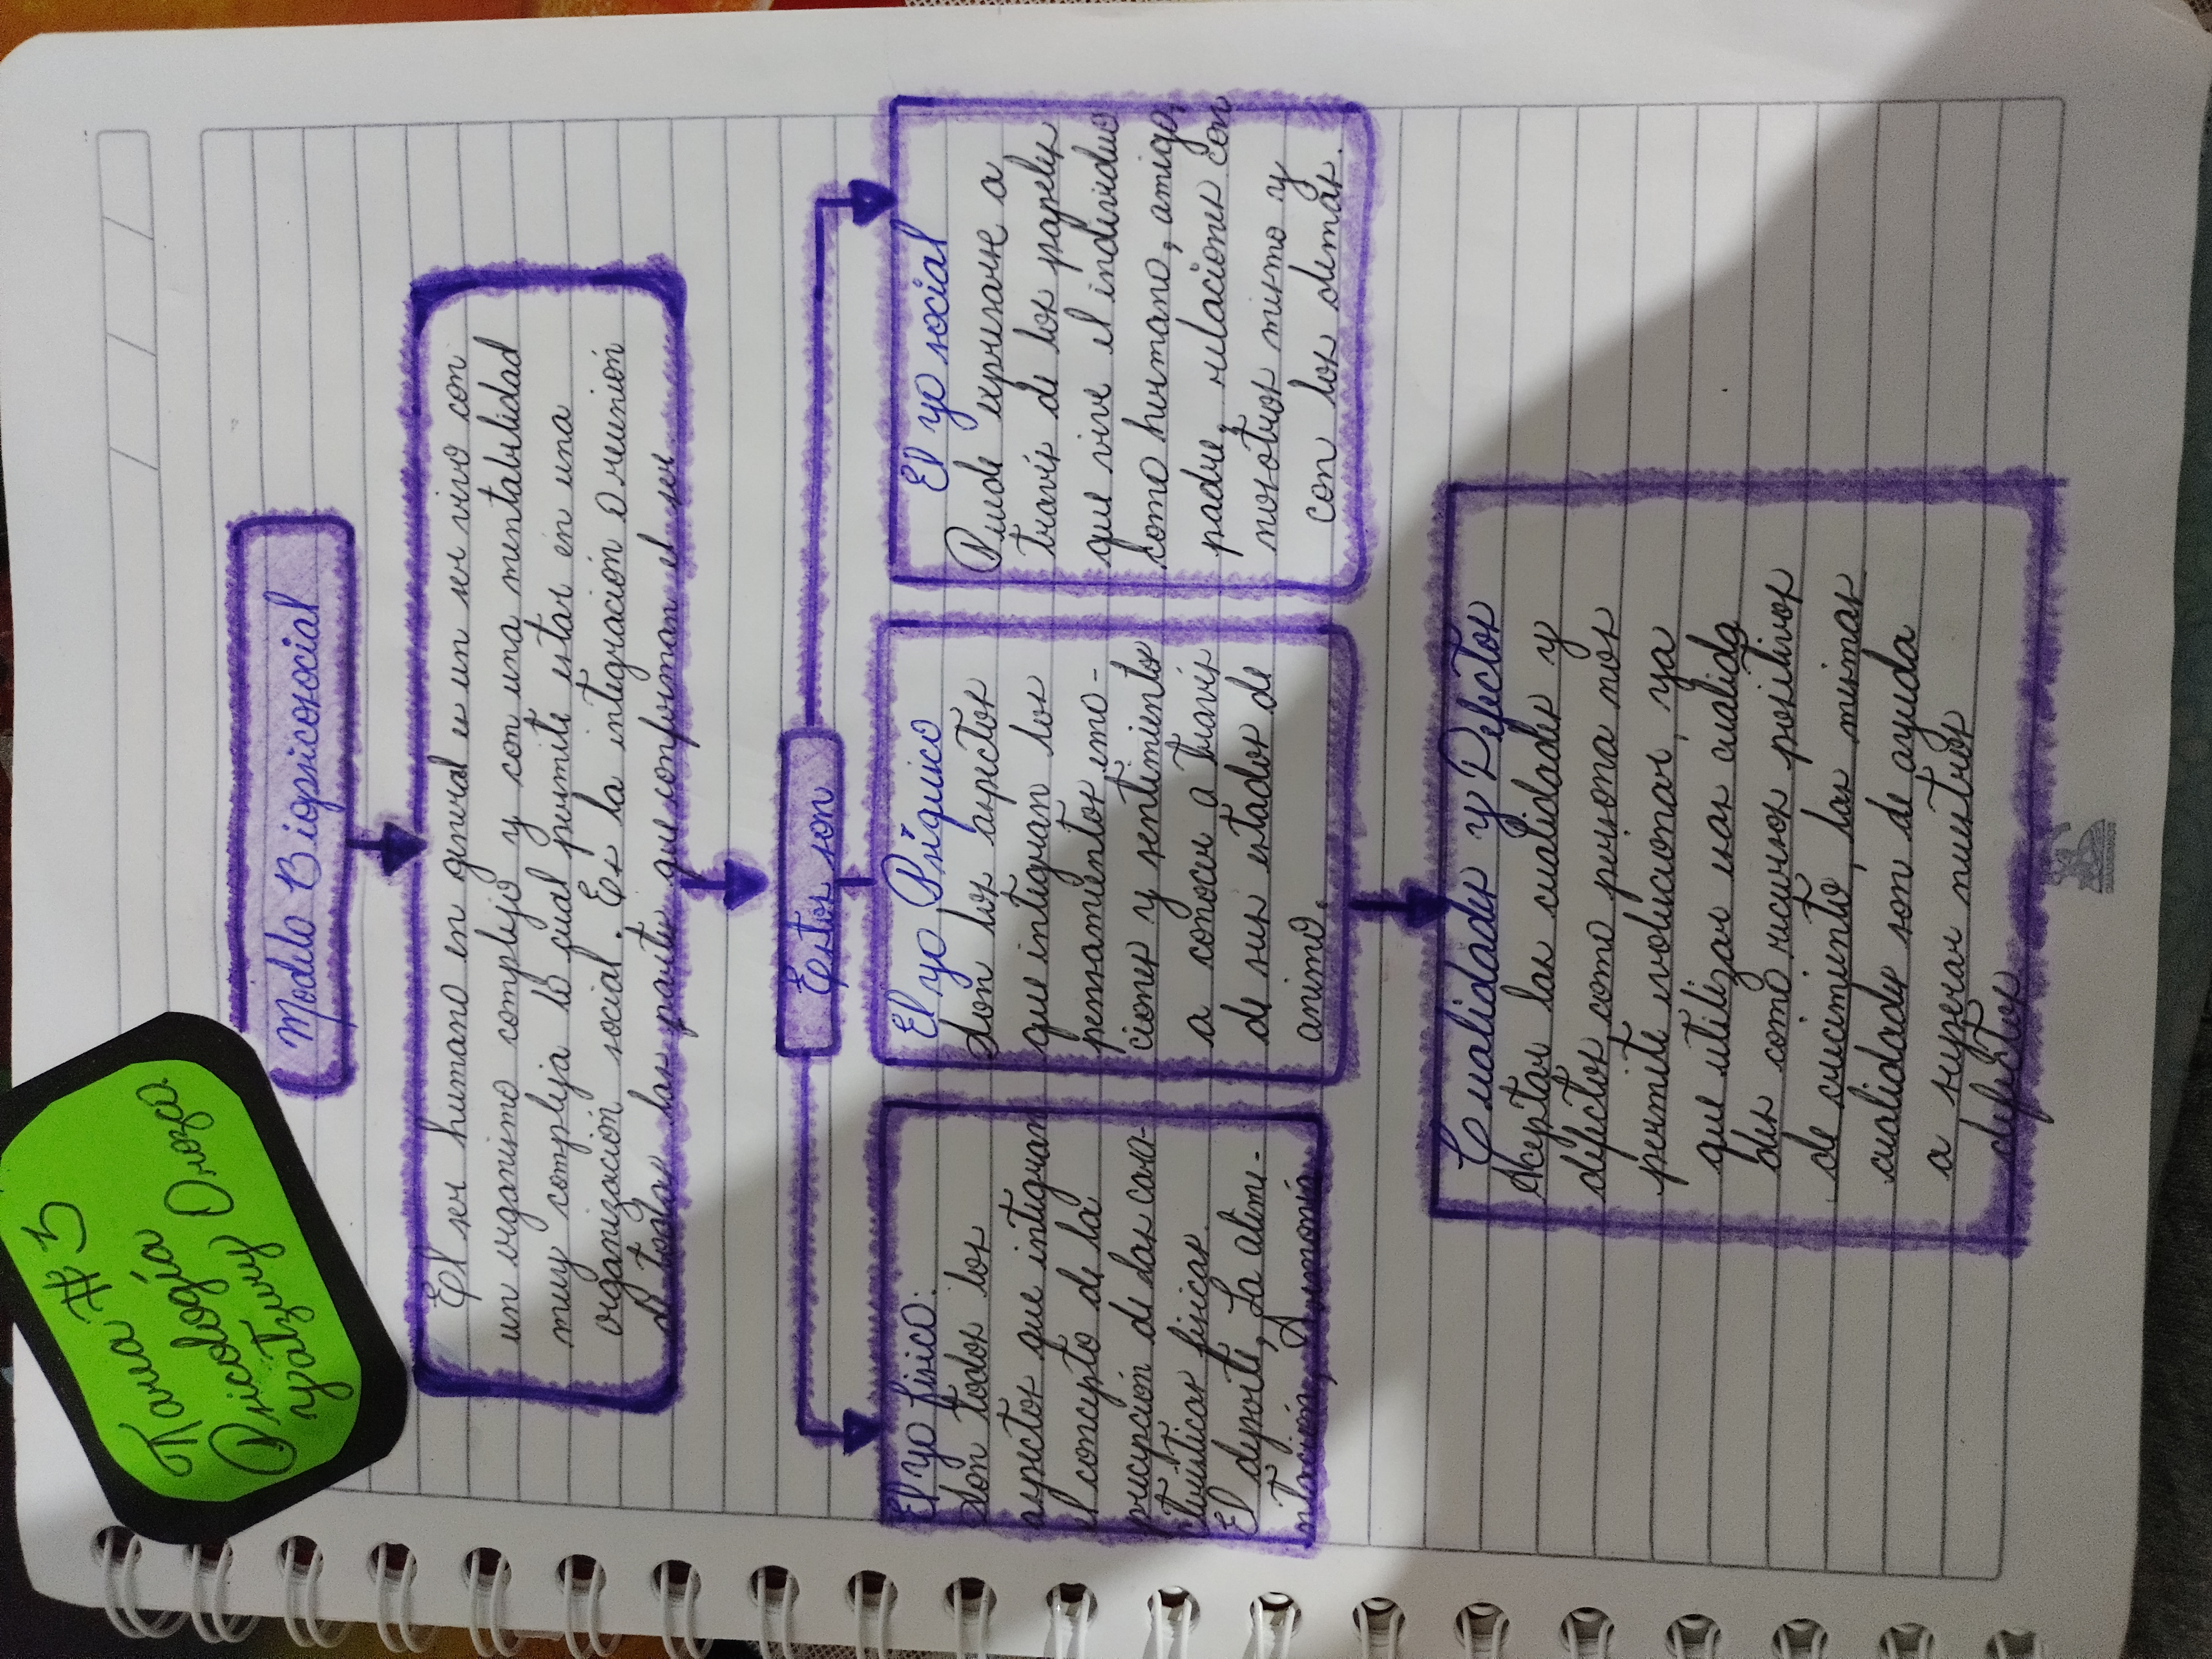 Tarea #3
Psicología
Yatziry Orozco
Modelo Biopsicosocial
El ser humano en general es un ser vivo con
un organismo complejo y con una mentabilidad
muy compleja lo cual permite estar en una
organización social. Es la integración o reunión
d todas las partes que conforman el ser.
Estos son
El yo físico:
Son todos los
aspectos que integran
el concepto de la
percepción de las cara-
cterísticas físicas.
El deporte, La alime-
ntación, Armonía
El yo Psíquico
Son los aspectos
que integran los
pensamientos emo-
ciones y sentimiento
a conocer a través
de sus estados de
animo.
El yo social
Puede expresarse a
través de los papeles
que vive el individuo
como hermano, amigo,
padre, relaciones con
nosotros mismo y
con los demás.
Cualidades y Defectos
Aceptar las cualidades y
defectos como persona nos
permite evolucionar, ya
que utilizar esas cualida
des como recursos positivos
de crecimiento, las mismas
cualidades son de ayuda
a superar nuestros
defectos